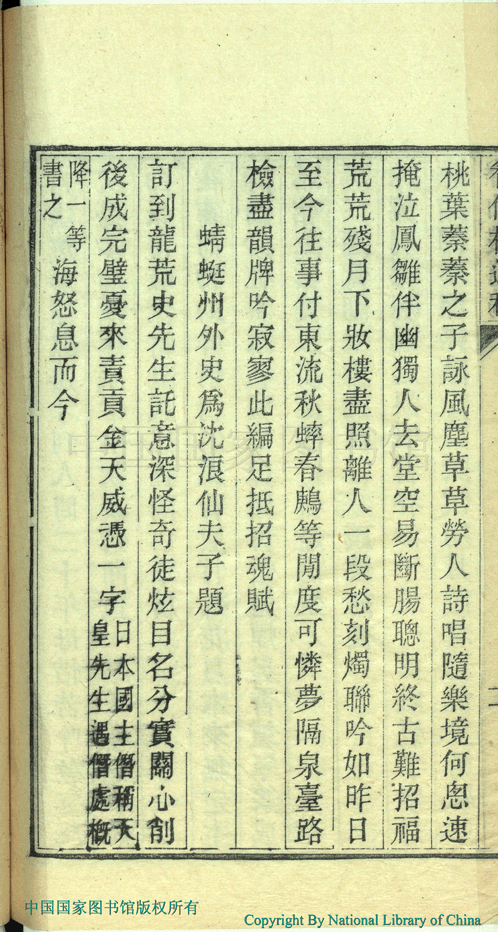 桃葉蓁蓁之子詠風塵草草勞人詩唱隨樂境何悤速
掩泣鳳雛伴幽獨人去堂空易斷腸聰明終古難招福
荒荒殘月下妝樓盡照離人一段愁刻燭聯吟如昨日
至今往事付東流秋蟀春鷓等閒度可憐夢隔泉臺路
檢盡韻牌吟寂寥此編足抵招魂賦
蜻蜓州外史爲沈浪仙夫子題
訂到龍荒史先生託意深怪奇徒炫目名分實關心削
後成完璧憂來責貢金天威憑一字日本國主僭稱天皇先生遇僭處槪
降一等書之海怒息而今
中国国家图书馆版权所有
Copyright By National Library of China